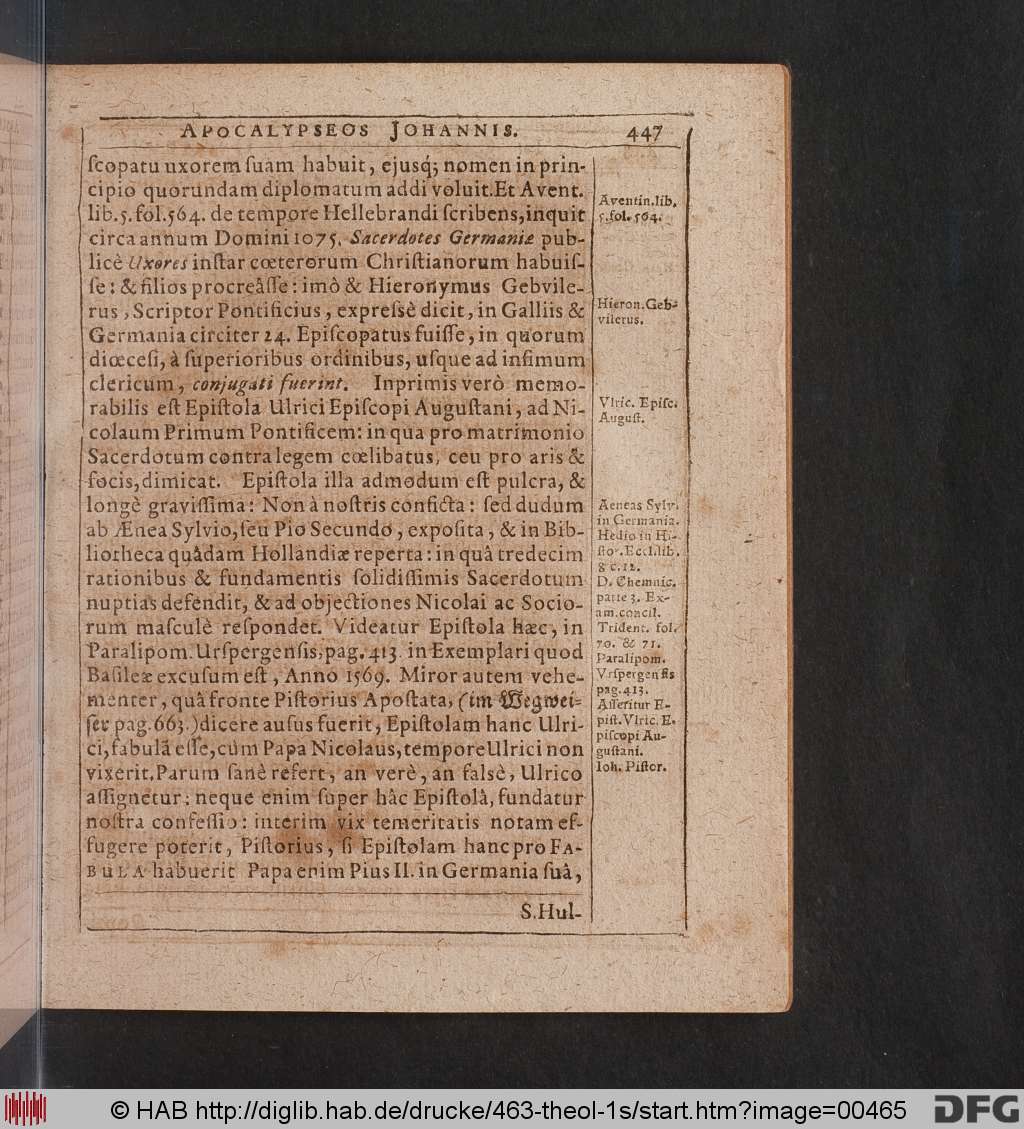 APOCALYPSEOS JOHANNIS. 447
ſcopatu uxorem ſuam habuit, ejusq́; nomen in prin-
cipio quorundam diplomatum addi voluit. Et Avent.
lib. 5. fol. 564. de tempore Hellebrandi ſcribens, inquit
circa annum Domini 1075. Sacerdotes Germaniæ pub-
licè Uxores inſtar cœterorum Chriſtianorum habuiſ-
ſe: & filios procreâſſe: imò & Hieronymus Gebvile-
rus, Scriptor Pontificius, expreſsè dicit, in Galliis &
Germania circiter 24. Epiſcopatus fuiſſe, in quorum
diœceſi, à ſuperioribus ordinibus, uſque ad infimum
clericum, conjugati fuerint. Inprimis verò memo-
rabilis eſt Epiſtola Ulrici Epiſcopi Auguſtani, ad Ni-
colaum Primum Pontificem: in qua pro matrimonio
Sacerdotum contra legem cœlibatus, ceu pro aris &
focis, dimicat. Epiſtola illa admodum eſt pulcra, &
longè graviſſima: Non à noſtris conficta: ſed dudum
ab Ænea Sylvio, ſeu Pio Secundo, expoſita, & in Bib-
liotheca quâdam Hollandiæ reperta: in quâ tredecim
rationibus & fundamentis ſolidiſſimis Sacerdotum
nuptias defendit, & ad objectiones Nicolai ac Socio-
rum maſculè reſpondet. Videatur Epiſtola hæc, in
Paralipom. Urſpergenſis, pag. 413. in Exemplari quod
Baſileæ excuſum eſt, Anno 1569. Miror autem vehe-
menter, quâ fronte Piſtorius Apoſtata, (im Wegwei-
ſer pag. 663.) dicere auſus fuerit, Epiſtolam hanc Ulri-
ci, fabulã eſſe, cùm Papa Nicolaus, tempore Ulrici non
vixerit. Parum ſanè refert, an verè, an falsè, Ulrico
aſſignetur: neque enim ſuper hâc Epiſtolâ, fundatur
noſtra confeſſio: interim vix temeritatis notam ef-
fugere poterit, Piſtorius, ſi Epiſtolam hanc pro FA-
BULA habuerit Papa enim Pius II. in Germania ſuâ,
S. Hul-
Aventin. lib.
5. fol. 564.
Hieron. Geb-
vilerus.
Vlric. Epiſc.
Auguſt.
Aeneas Sylv.
in Germania.
Hedio in Hi-
ſtor. Eccl. lib.
8 c. 12.
D. Chemnic.
parte 3. Ex-
am. concil.
Trident. fol.
70. & 71.
Paralipom.
Vrſpergenſis
pag. 413.
Aſſeritur E-
piſt. Vlric. E-
piſcopi Au-
guſtani.
Ioh. Piſtor.
© HAB http://diglib.hab.de/drucke/463-theol-1s/start.htm?image=00465
DFG